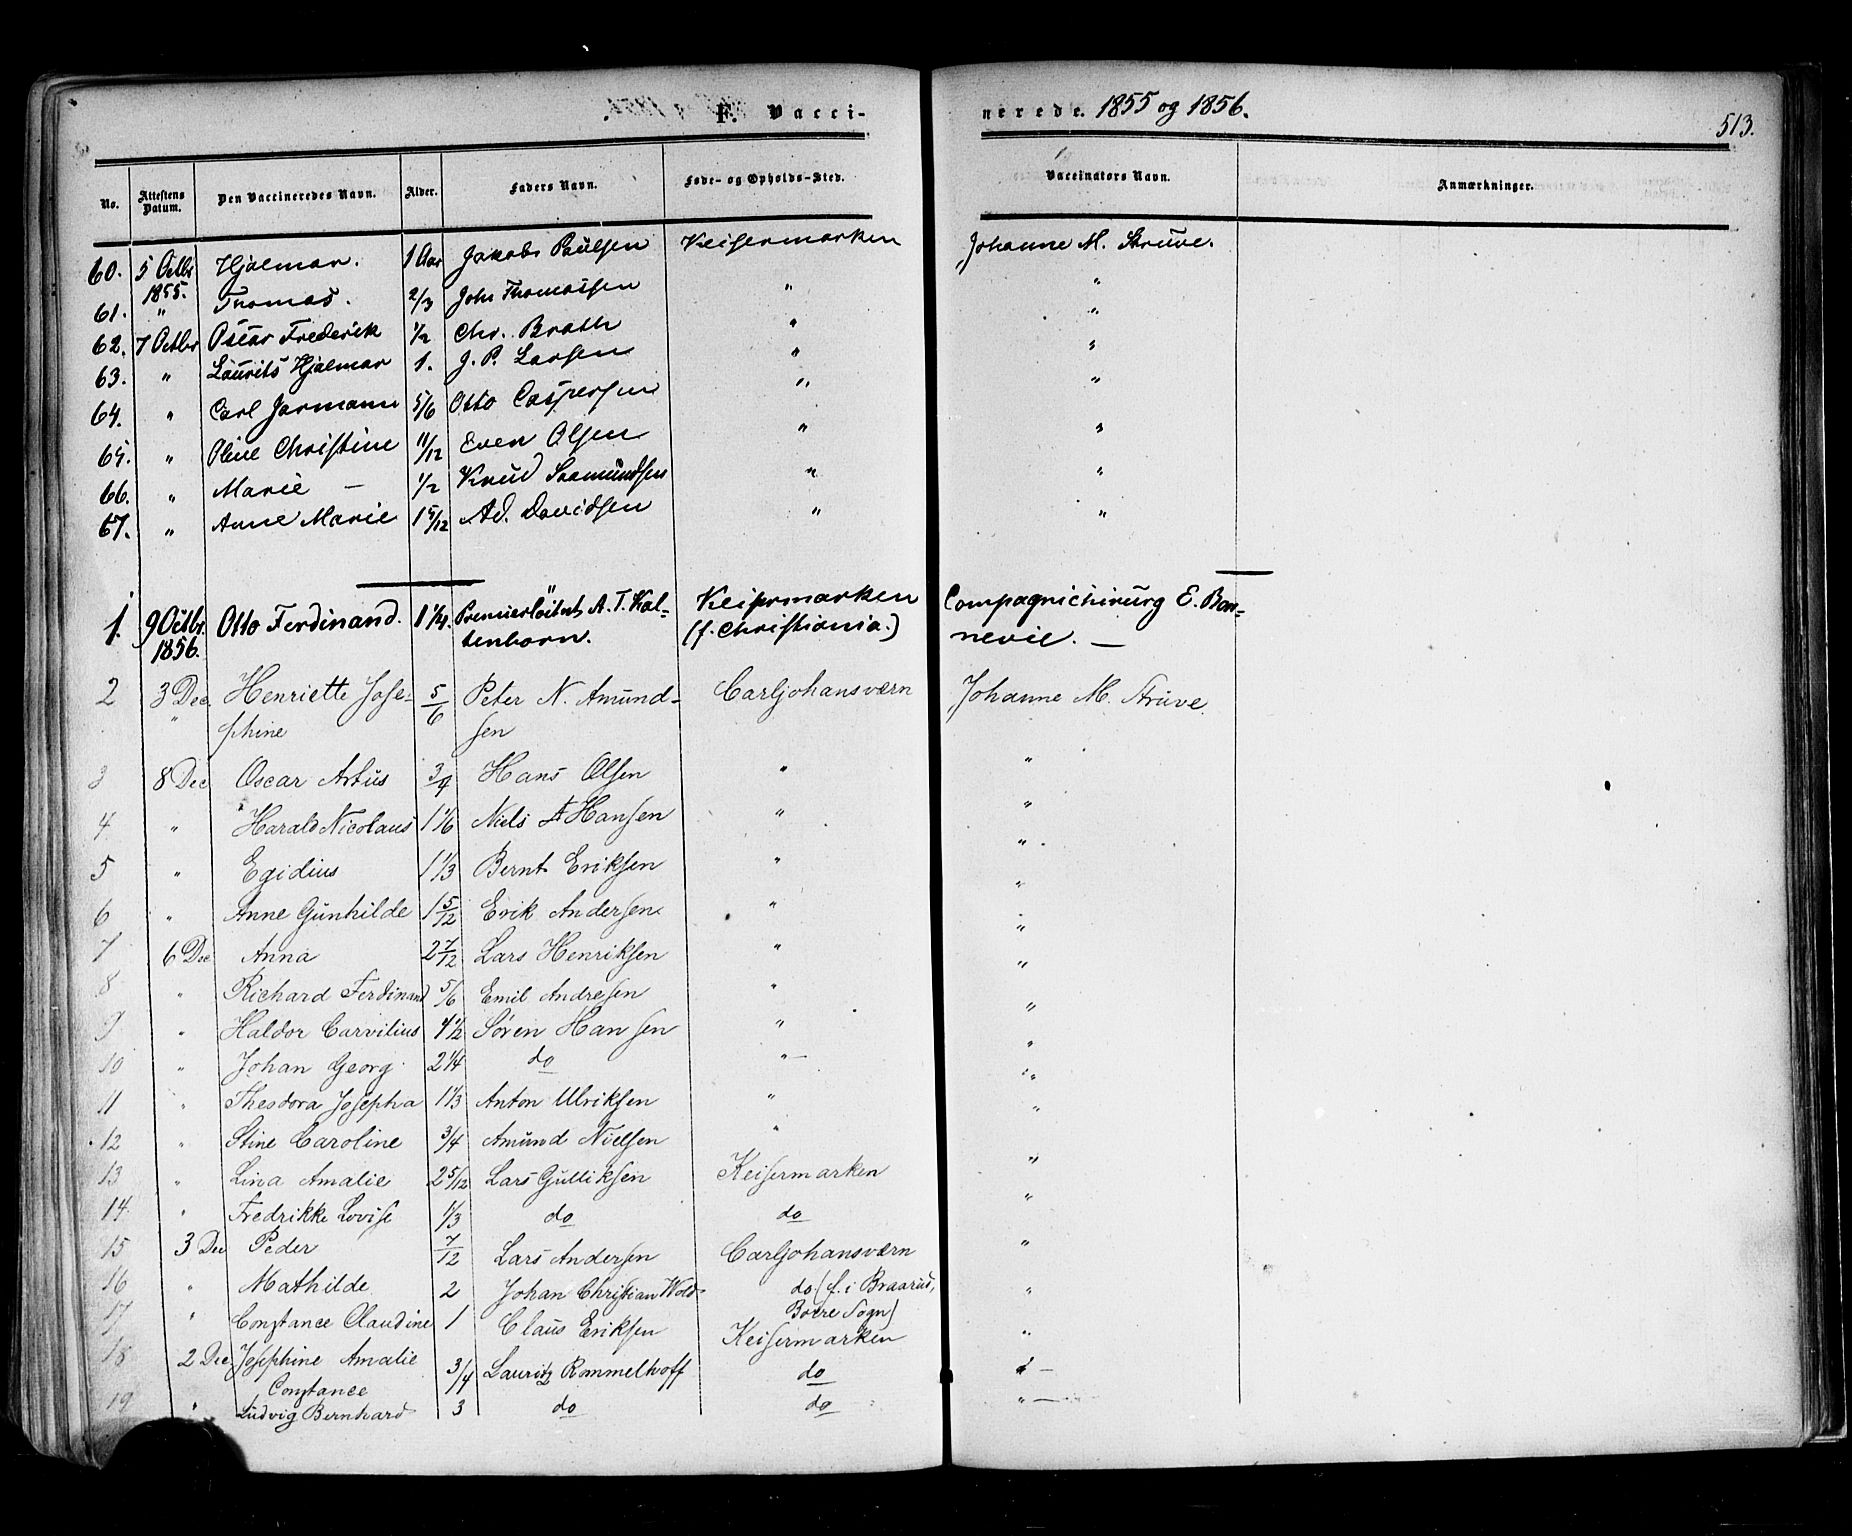 F. Vaccinerede. 1855 og 1856.
513.
No. Attestens Datum. Den Vaccineredes Navn. Alder. Faders Navn. Føde- og Opholds-Sted. Vaccinators Navn. Anmærkninger.
60. 5 Octbr 1855. Hjalmar. 1 Aar Jakob Paulsen Keisermarken Johanne M. Strüve.
61. " Thomas. 2/3 Joh: Thomassen " "
62. 7 Octbr Oscar Frederik 1/2 Chr. Brath " "
63. " Laurits Hjalmar 1. J. P. Larsen " "
64. " Carl Jarmann 5/6 Otto Caspersen " "
65. " Oline Christine 11/12 Even Olsen " "
66. " Marie — 1/2 Knud Saamundsen " "
67. " Anne Marie 1 5/12 Ad. Davidsen " "
1. 9 Octbr. 1856. Otto Ferdinand. 1 1/4. Premierløitnt A. T. Kal-
tenborn. Keisrmarken (f. Christiania.) Compagnichirurg E. Bon-
nevie. —
2 3 Dec. " Henriette Jose-
phine 5/6 Peter N. Amund-
sen Carljohansværn Johanne M. Strüve
3 8 Dec Oscar Artus 3/4 Hans Olsen " "
4 " Harald Nicolaus 1 1/6 Niels Hansen " "
5 " Egidius 1 1/3 Bernt Eriksen " "
6 " Anne Gunhilde 1 5/12 Erik Andersen " "
7 6 Dec Anna 2 7/12 Lars Henriksen " "
8 " Richard Ferdinand 5/6 Emil Andresen " "
9 " Haldor Carvilius 4 1/2 Søren Hansen " "
10 " Johan Georg 2 1/4 do " "
11 " Theodora Josepha 1 1/3 Anton Ulriksen " "
12 " Stine Caroline 3/4 Amund Nielsen " "
13 " Lina Amalie 2 5/12 Lars Gulliksen Keisermarken "
14 " Fredrikke Lovise 1/3 do do "
15 3 Dec Peder 7/12 Lars Andersen Carljohansværn "
16 " Mathilde 2 Johan Christian Wold do (f. i Braarud,
Borre Sogn) "
17 " Constance Claudine 1 Claus Eriksen Keisermarken "
18 2 Dec. Josephine Amalie
Constance 3/4 Lauritz Rommelhoff do " —
19 " Ludvig Bernhard 3 do do " —